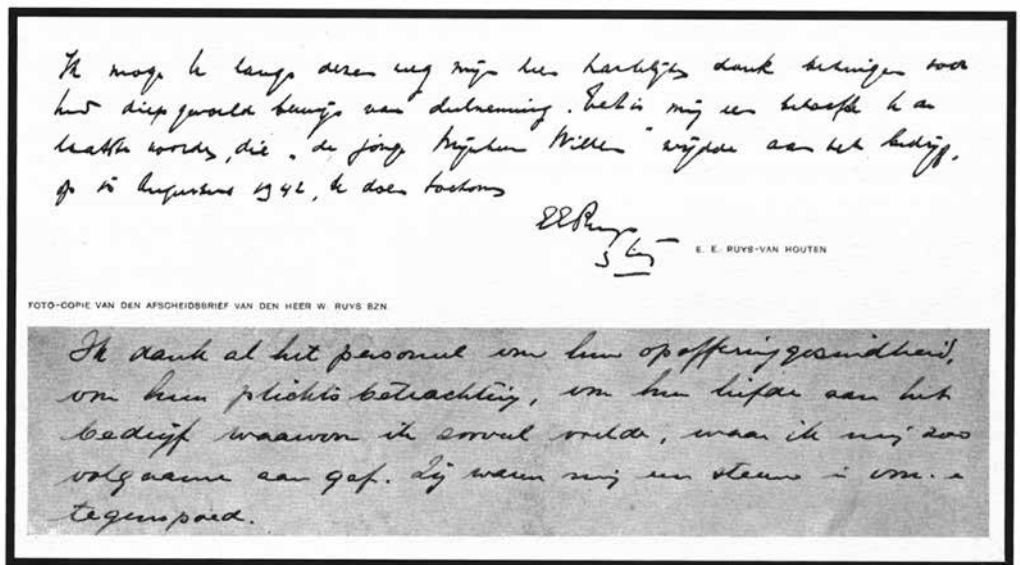 Ik moge U langs dezen weg mijn zeer hartelijken dank betuigen voor
Uw diep gevoeld bewijs van deelneming. Het is mij een behoefte U de
laatste woorden, die „de jonge Mijnheer Willem" wijdde aan het bedrijf,
op 15 Augustus 1942, te doen toekomen
EERuys
E. E. RUYS-VAN HOUTEN
FOTO-COPIE VAN DEN AFSCHEIDSBRIEF VAN DEN HEER W. RUYS BZN.
Ik dank al het personeel voor hun opofferingsgezindheid,
voor hun plichtsbetrachting, voor hun liefde aan het
bedrijf waarvoor ik zooveel voelde, waar ik mij zoo
volgaarne aan gaf. Zij waren mij een steun in voor- en
tegenspoed.